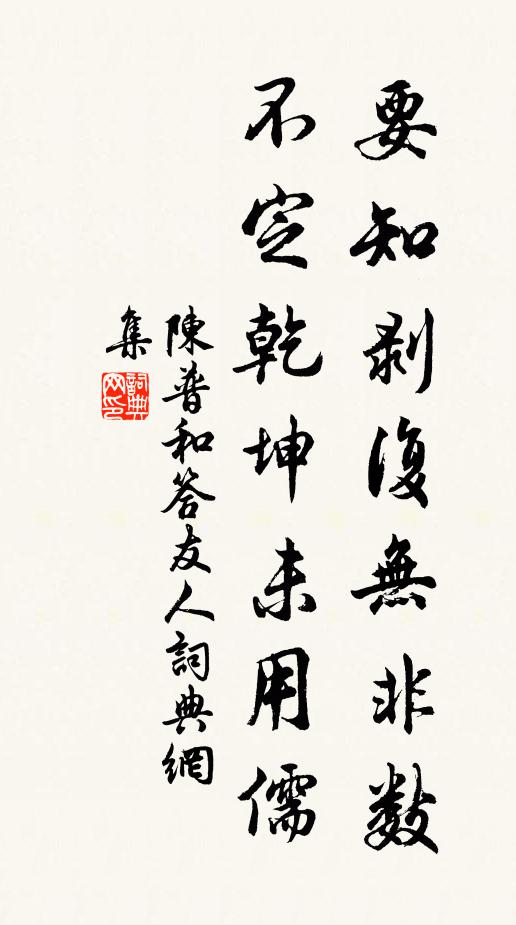 要知剥復無非數
不定乾坤未用儒
陳普和答友人詞典網
集
詞典
网印